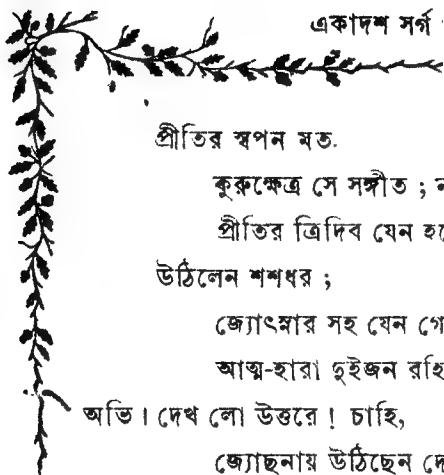 একাদশ সর্গ
প্রীতির স্বপন মত.
কুরুক্ষেত্র সে সঙ্গীত ;
প্রীতির ত্রিদিব যেন
উঠিলেন শশধর ;
জ্যোৎস্নার সহ যেন
আত্ম-হারা দুইজন
অভি। দেখ লো উত্তরে ! চাহি,
জ্যোছনায় উঠিছেন